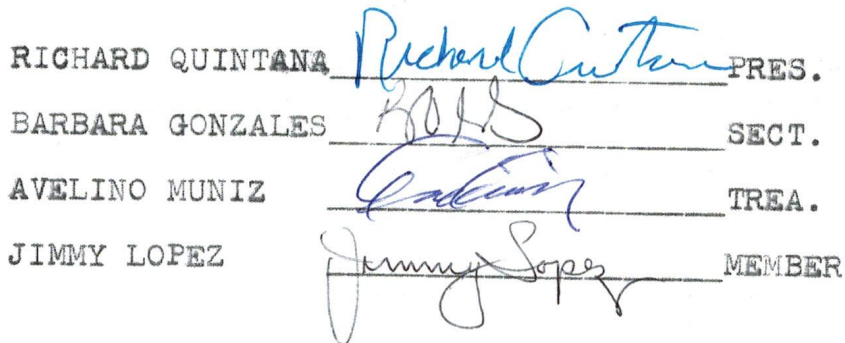 RICHARD QUINTANA Richard Quintana PRES.
BARBARA GONZALES SECT.
AVELINO MUNIZ TREA.
JIMMY LOPEZ Jimmy Lopez MEMBER